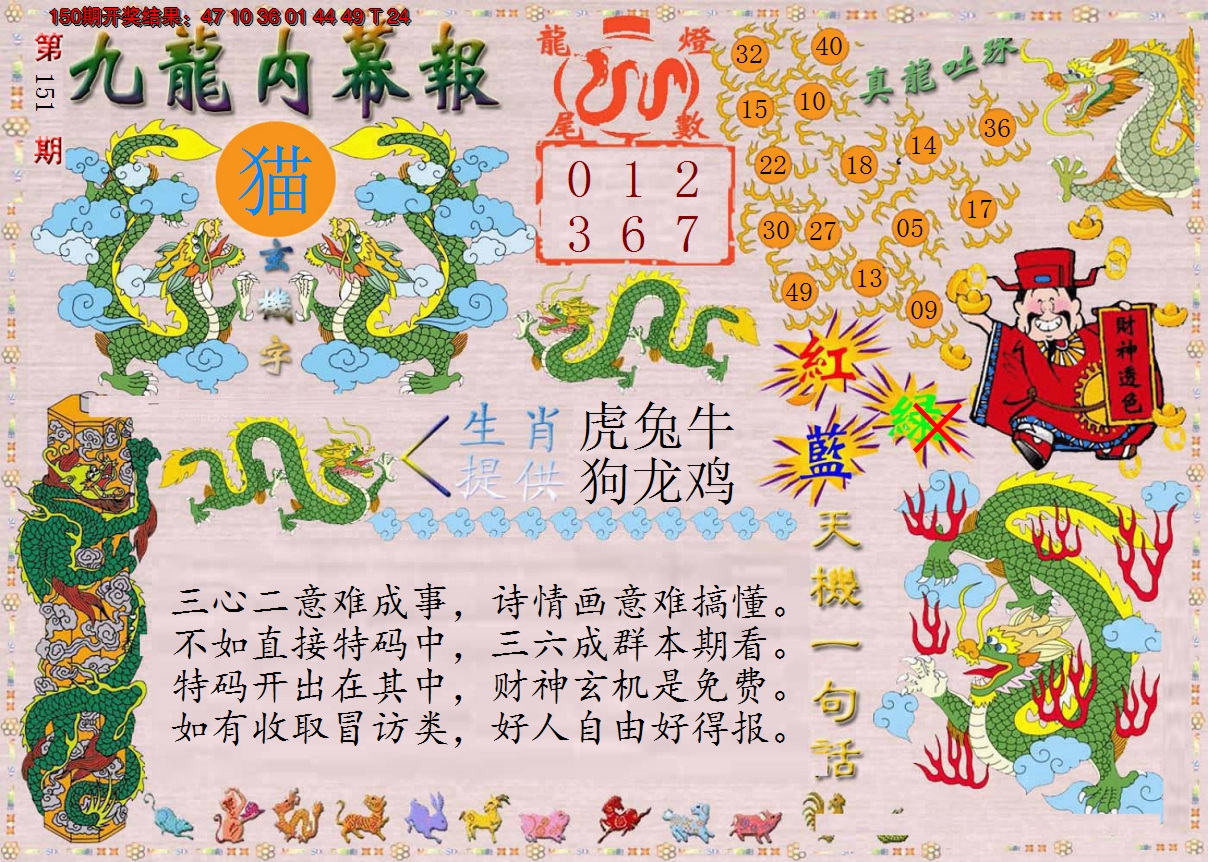 150期开奖结果：47 10 36 01 44 49 T 24
第151期
九龍内幕報
猫
玄機字
龍燈
尾數
0 1 2
3 6 7
真龍吐珠
32 40
15 10
22 18 14 36
30 27 05 17
49 13 09
財神透色
紅
綠
藍
生肖 虎兔牛
提供 狗龙鸡
三心二意难成事，诗情画意难搞懂。
不如直接特码中，三六成群本期看。
特码开出在其中，财神玄机是免费。
如有收取冒访类，好人自由好得报。
天機一句話